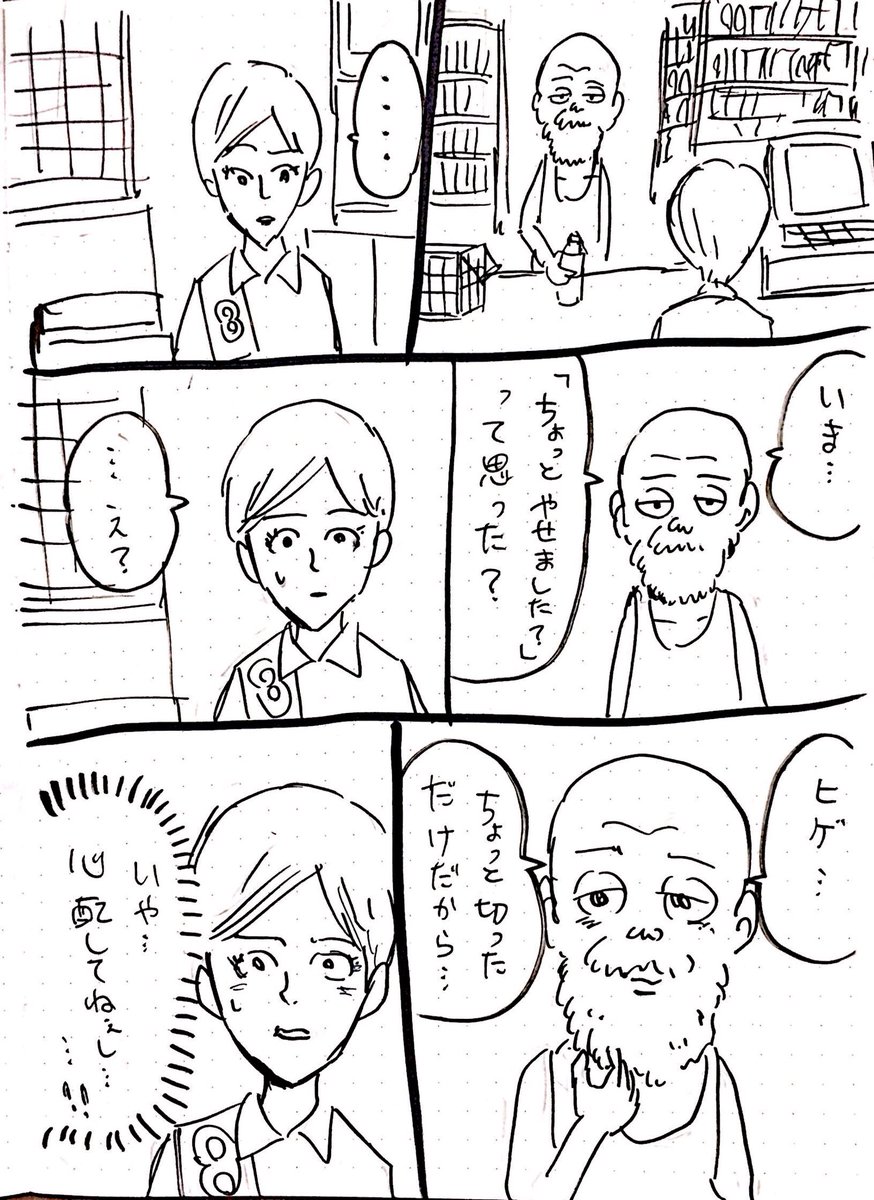 ・・・・
いま…
「ちょっとやせました?」
って思った?
……え?
ヒゲ…
ちょっと切った
だけだから…
いや…
心配してねぇし…
…!!